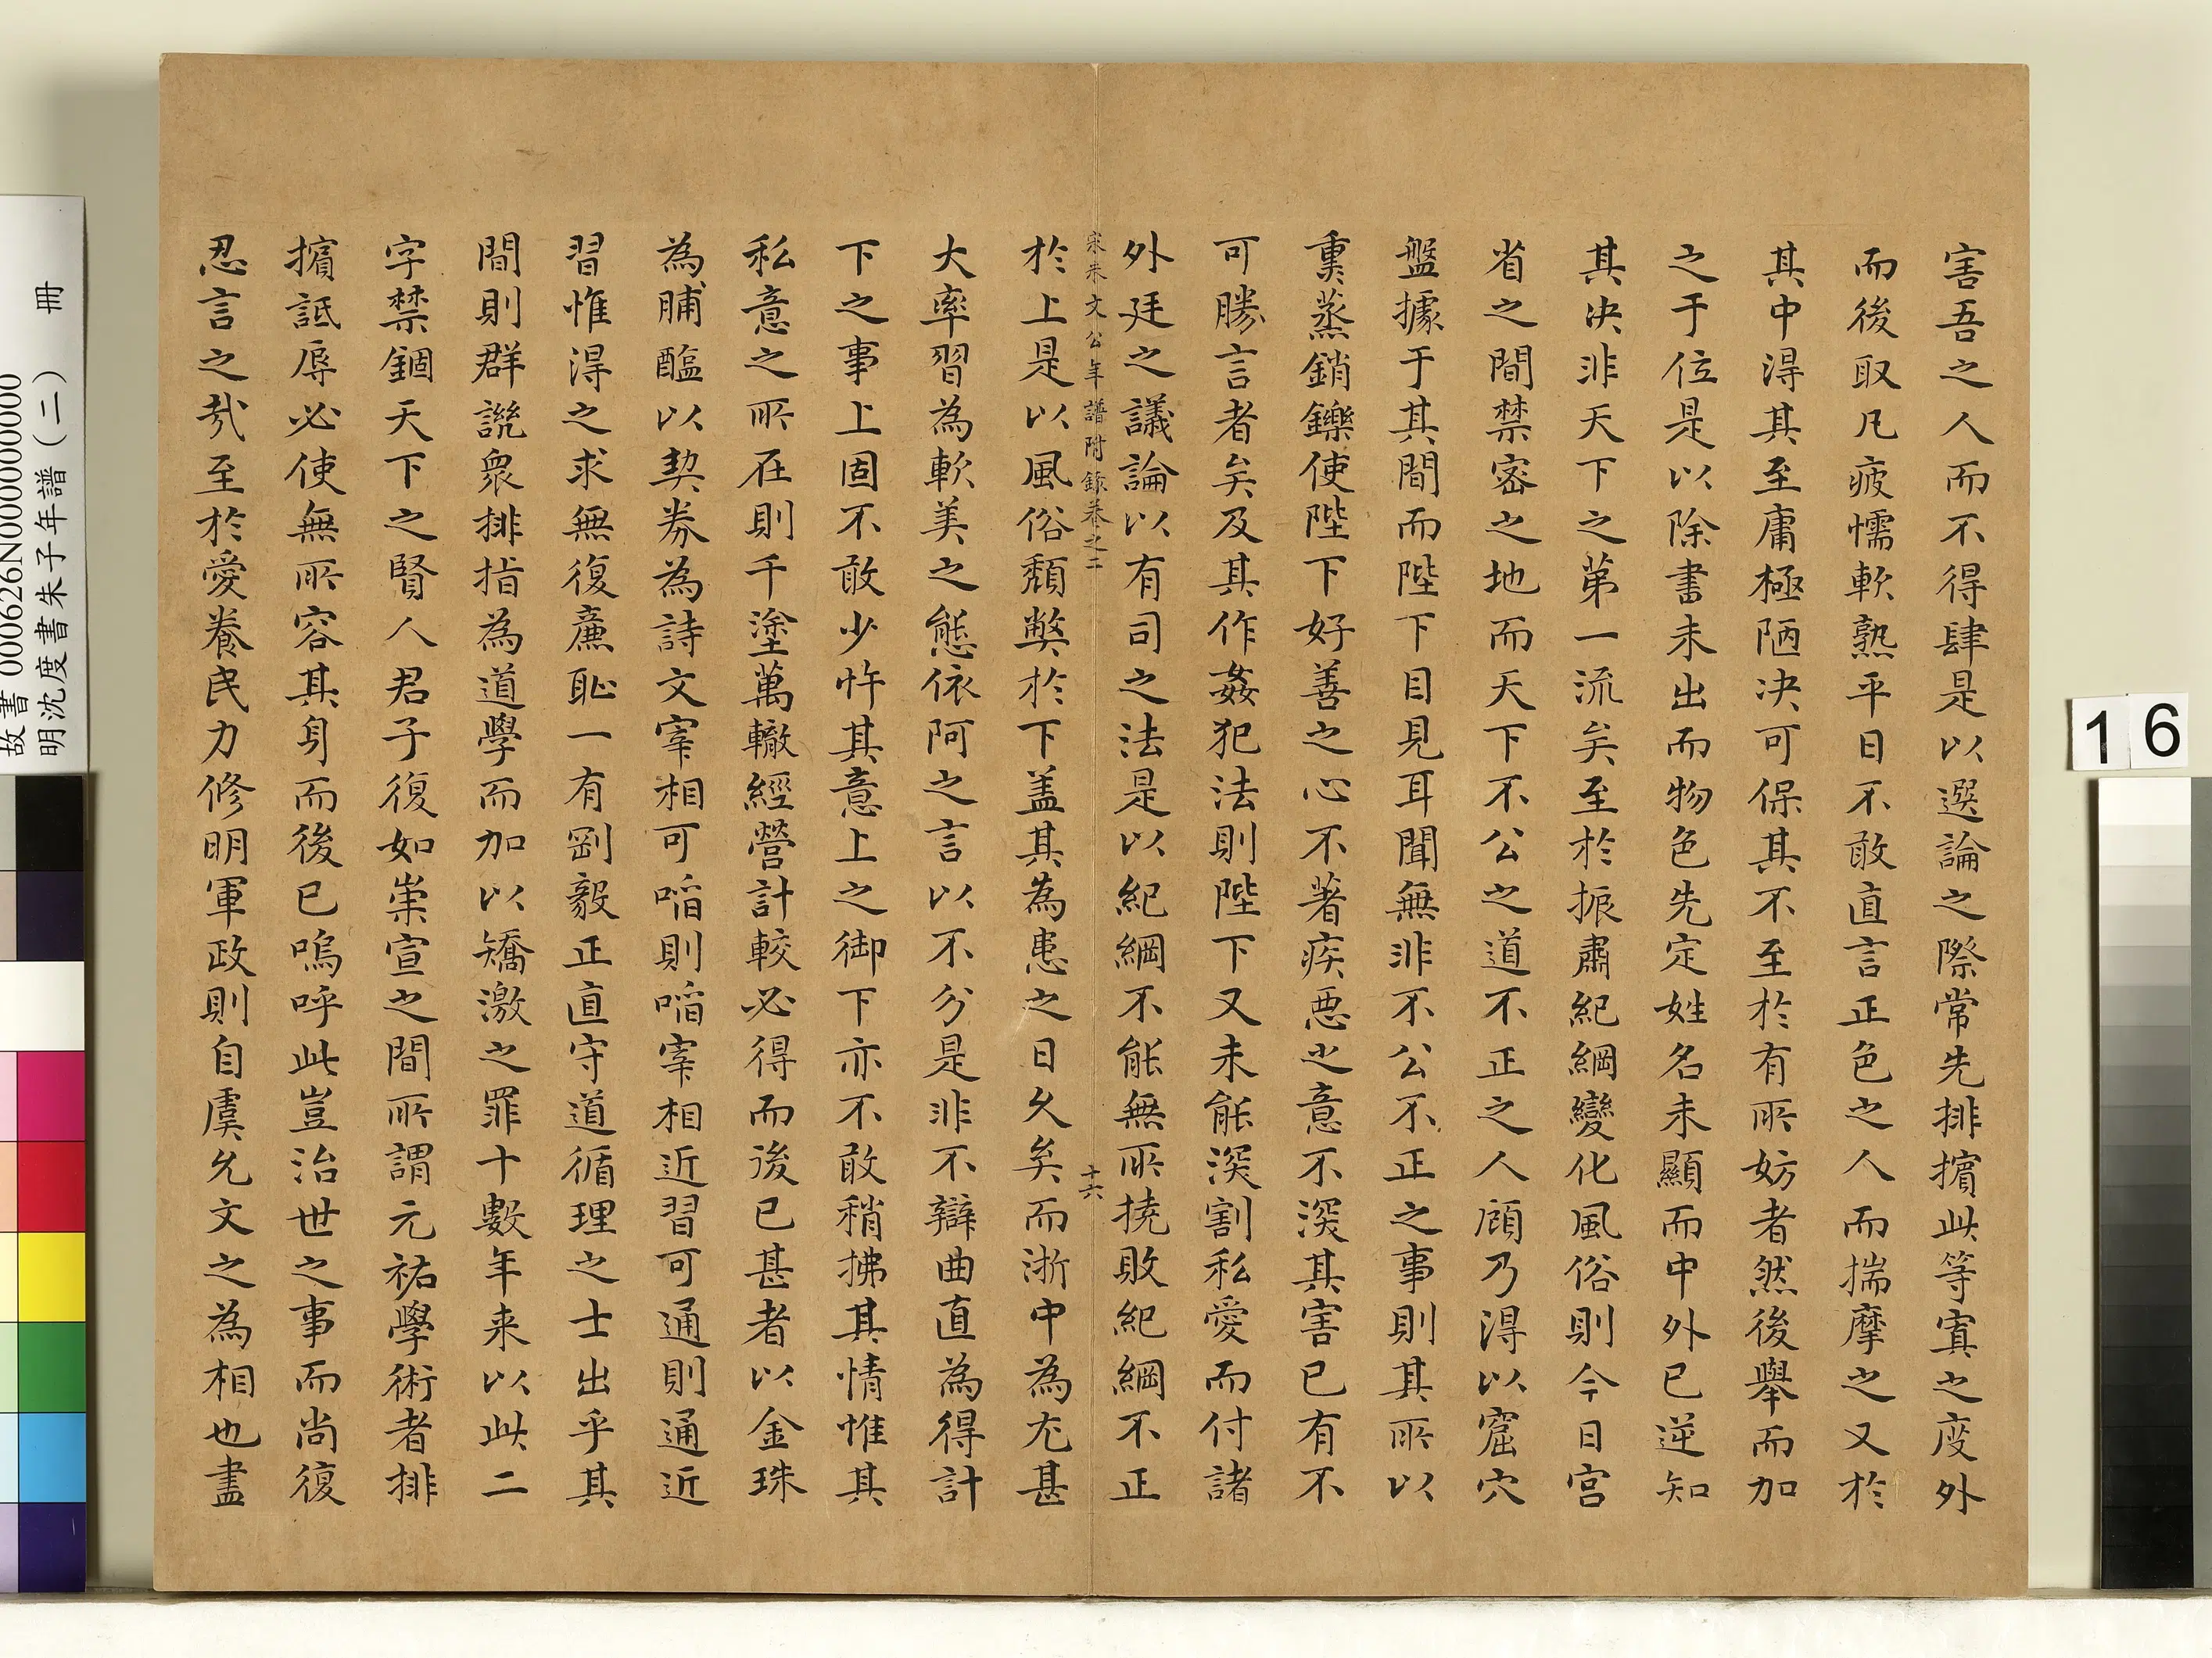 害吾之人而不得肆是以選論之際常先排擯此等寘之度外
而後取凡疲懦軟熟平日不敢直言正色之人而揣摩之又於
其中得其至庸極陋決可保其不至於有所妨者然後舉而加
之于位是以除書未出而物色先定姓名未顯而中外已逆知
其決非天下之第一流矣至於振肅紀綱變化風俗則今日宮
省之間禁密之地而天下不公之道不正之人顧乃得以窟穴
盤據于其間而陛下目見耳聞無非不公不正之事則其所以
熏蒸銷鑠使陛下好善之心不著疾惡之意不深其害已有不
可勝言者矣及其作姦犯法則陛下又未能深割私愛而付諸
外廷之議論以有司之法是以紀綱不能無所撓敗紀綱不正
宋朱文公年譜附錄卷之二
十六
於上是以風俗頹弊於下盖其為患之日久矣而浙中為尤甚
大率習為軟美之態依阿之言以不分是非不辯曲直為得計
下之事上固不敢少忤其意上之御下亦不敢稍拂其情惟其
私意之所在則千塗萬轍經營計較必得而後已甚者以金珠
為脯醢以契券為詩文宰相可啗則啗宰相近習可通則通近
習惟得之求無復廉恥一有剛毅正直守道循理之士出乎其
間則群譏衆排指為道學而加以矯激之罪十數年来以此二
字禁錮天下之賢人君子復如崇宣之間所謂元祐學術者排
擯詆辱必使無所容其身而後已嗚呼此豈治世之事而尚復
忍言之哉至於愛養民力修明軍政則自虞允文之為相也盡
16
故書000626N000000000
明沈度書朱子年譜(二) 冊